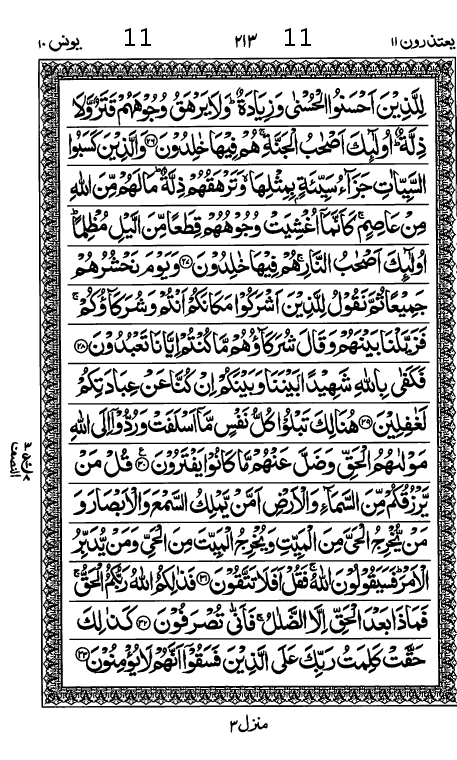 يعتذرون ١١ 11 ٢١٣ 11 يونس ١٠
لِلَّذِيْنَ اَحْسَنُوا الْحُسْنٰى وَزِيَادَةٌ ؕ وَلَا يَرْهَقُ وُجُوْهَهُمْ قَتَرٌ وَّلَا
ذِلَّةٌ ؕ اُولٰٓئِكَ اَصْحٰبُ الْجَنَّةِ ۚ هُمْ فِيْهَا خٰلِدُوْنَ ﴿۲۶﴾ وَالَّذِيْنَ كَسَبُوا
السَّيِّاٰتِ جَزَآءُ سَيِّئَةٍۭ بِمِثْلِهَا ۙ وَتَرْهَقُهُمْ ذِلَّةٌ ؕ مَا لَهُمْ مِّنَ اللّٰهِ
مِنْ عَاصِمٍ ۚ كَاَنَّمَاۤ اُغْشِيَتْ وُجُوْهُهُمْ قِطَعًا مِّنَ الَّيْلِ مُظْلِمًا ؕ
اُولٰٓئِكَ اَصْحٰبُ النَّارِ ۚ هُمْ فِيْهَا خٰلِدُوْنَ ﴿۲۷﴾ وَيَوْمَ نَحْشُرُهُمْ
جَمِيْعًا ثُمَّ نَقُوْلُ لِلَّذِيْنَ اَشْرَكُوْا مَكَانَكُمْ اَنْتُمْ وَشُرَكَآؤُكُمْ ۚ
فَزَيَّلْنَا بَيْنَهُمْ وَقَالَ شُرَكَآؤُهُمْ مَّا كُنْتُمْ اِيَّانَا تَعْبُدُوْنَ ﴿۲۸﴾
فَكَفٰى بِاللّٰهِ شَهِيْدًۢا بَيْنَنَا وَبَيْنَكُمْ اِنْ كُنَّا عَنْ عِبَادَتِكُمْ
لَغٰفِلِيْنَ ﴿۲۹﴾ هُنَالِكَ تَبْلُوْا كُلُّ نَفْسٍ مَّاۤ اَسْلَفَتْ وَرُدُّوْۤا اِلَى اللّٰهِ
مَوْلٰىهُمُ الْحَقِّ وَضَلَّ عَنْهُمْ مَّا كَانُوْا يَفْتَرُوْنَ ﴿۳۰﴾ قُلْ مَنْ
يَّرْزُقُكُمْ مِّنَ السَّمَآءِ وَالْاَرْضِ اَمَّنْ يَّمْلِكُ السَّمْعَ وَالْاَبْصَارَ وَ
مَنْ يُّخْرِجُ الْحَيَّ مِنَ الْمَيِّتِ وَيُخْرِجُ الْمَيِّتَ مِنَ الْحَيِّ وَمَنْ يُّدَبِّرُ
الْاَمْرَ ؕ فَسَيَقُوْلُوْنَ اللّٰهُ ۚ فَقُلْ اَفَلَا تَتَّقُوْنَ ﴿۳۱﴾ فَذٰلِكُمُ اللّٰهُ رَبُّكُمُ الْحَقُّ ۚ
فَمَاذَا بَعْدَ الْحَقِّ اِلَّا الضَّلٰلُ ۖۚ فَاَنّٰى تُصْرَفُوْنَ ﴿۳۲﴾ كَذٰلِكَ
حَقَّتْ كَلِمَتُ رَبِّكَ عَلَى الَّذِيْنَ فَسَقُوْۤا اَنَّهُمْ لَا يُؤْمِنُوْنَ ﴿۳۳﴾
منزل ٣